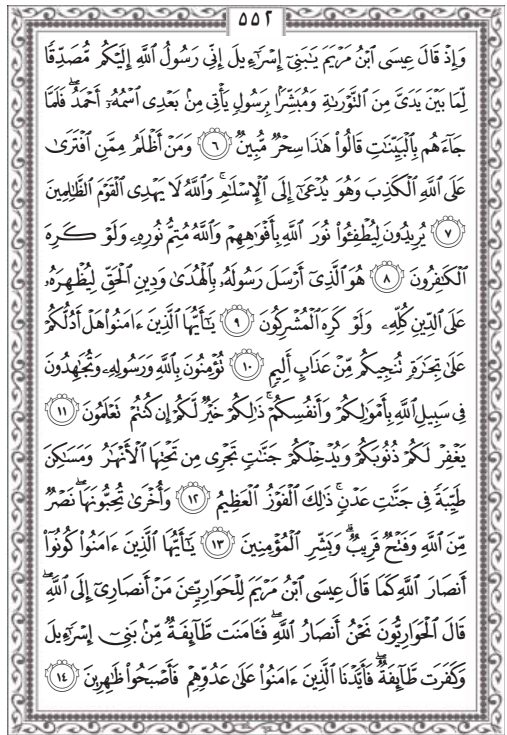 ٥٥٢
وَإِذْ قَالَ عِيسَى ٱبْنُ مَرْيَمَ يَـٰبَنِىٓ إِسْرَٰٓءِيلَ إِنِّى رَسُولُ ٱللَّهِ إِلَيْكُم مُّصَدِّقًا
لِّمَا بَيْنَ يَدَىَّ مِنَ ٱلتَّوْرَىٰةِ وَمُبَشِّرًۢا بِرَسُولٍ يَأْتِى مِنۢ بَعْدِى ٱسْمُهُۥٓ أَحْمَدُ ۖ فَلَمَّا
جَآءَهُم بِٱلْبَيِّنَـٰتِ قَالُوا۟ هَـٰذَا سِحْرٌ مُّبِينٌ ٦ وَمَنْ أَظْلَمُ مِمَّنِ ٱفْتَرَىٰ
عَلَى ٱللَّهِ ٱلْكَذِبَ وَهُوَ يُدْعَىٰٓ إِلَى ٱلْإِسْلَـٰمِ ۚ وَٱللَّهُ لَا يَهْدِى ٱلْقَوْمَ ٱلظَّـٰلِمِينَ
٧ يُرِيدُونَ لِيُطْفِـُٔوا۟ نُورَ ٱللَّهِ بِأَفْوَٰهِهِمْ وَٱللَّهُ مُتِمُّ نُورِهِۦ وَلَوْ كَرِهَ
ٱلْكَـٰفِرُونَ ٨ هُوَ ٱلَّذِىٓ أَرْسَلَ رَسُولَهُۥ بِٱلْهُدَىٰ وَدِينِ ٱلْحَقِّ لِيُظْهِرَهُۥ
عَلَى ٱلدِّينِ كُلِّهِۦ وَلَوْ كَرِهَ ٱلْمُشْرِكُونَ ٩ يَـٰٓأَيُّهَا ٱلَّذِينَ ءَامَنُوا۟ هَلْ أَدُلُّكُمْ
عَلَىٰ تِجَـٰرَةٍ تُنجِيكُم مِّنْ عَذَابٍ أَلِيمٍ ١٠ تُؤْمِنُونَ بِٱللَّهِ وَرَسُولِهِۦ وَتُجَـٰهِدُونَ
فِى سَبِيلِ ٱللَّهِ بِأَمْوَٰلِكُمْ وَأَنفُسِكُمْ ۚ ذَٰلِكُمْ خَيْرٌ لَّكُمْ إِن كُنتُمْ تَعْلَمُونَ ١١
يَغْفِرْ لَكُمْ ذُنُوبَكُمْ وَيُدْخِلْكُمْ جَنَّـٰتٍ تَجْرِى مِن تَحْتِهَا ٱلْأَنْهَـٰرُ وَمَسَـٰكِنَ
طَيِّبَةً فِى جَنَّـٰتِ عَدْنٍ ۚ ذَٰلِكَ ٱلْفَوْزُ ٱلْعَظِيمُ ١٢ وَأُخْرَىٰ تُحِبُّونَهَا ۖ نَصْرٌ
مِّنَ ٱللَّهِ وَفَتْحٌ قَرِيبٌ ۗ وَبَشِّرِ ٱلْمُؤْمِنِينَ ١٣ يَـٰٓأَيُّهَا ٱلَّذِينَ ءَامَنُوا۟ كُونُوٓا۟
أَنصَارَ ٱللَّهِ كَمَا قَالَ عِيسَى ٱبْنُ مَرْيَمَ لِلْحَوَارِيِّـۧنَ مَنْ أَنصَارِىٓ إِلَى ٱللَّهِ ۖ
قَالَ ٱلْحَوَارِيُّونَ نَحْنُ أَنصَارُ ٱللَّهِ ۖ فَـَٔامَنَت طَّآئِفَةٌ مِّنۢ بَنِىٓ إِسْرَٰٓءِيلَ
وَكَفَرَت طَّآئِفَةٌ ۖ فَأَيَّدْنَا ٱلَّذِينَ ءَامَنُوا۟ عَلَىٰ عَدُوِّهِمْ فَأَصْبَحُوا۟ ظَـٰهِرِينَ ١٤